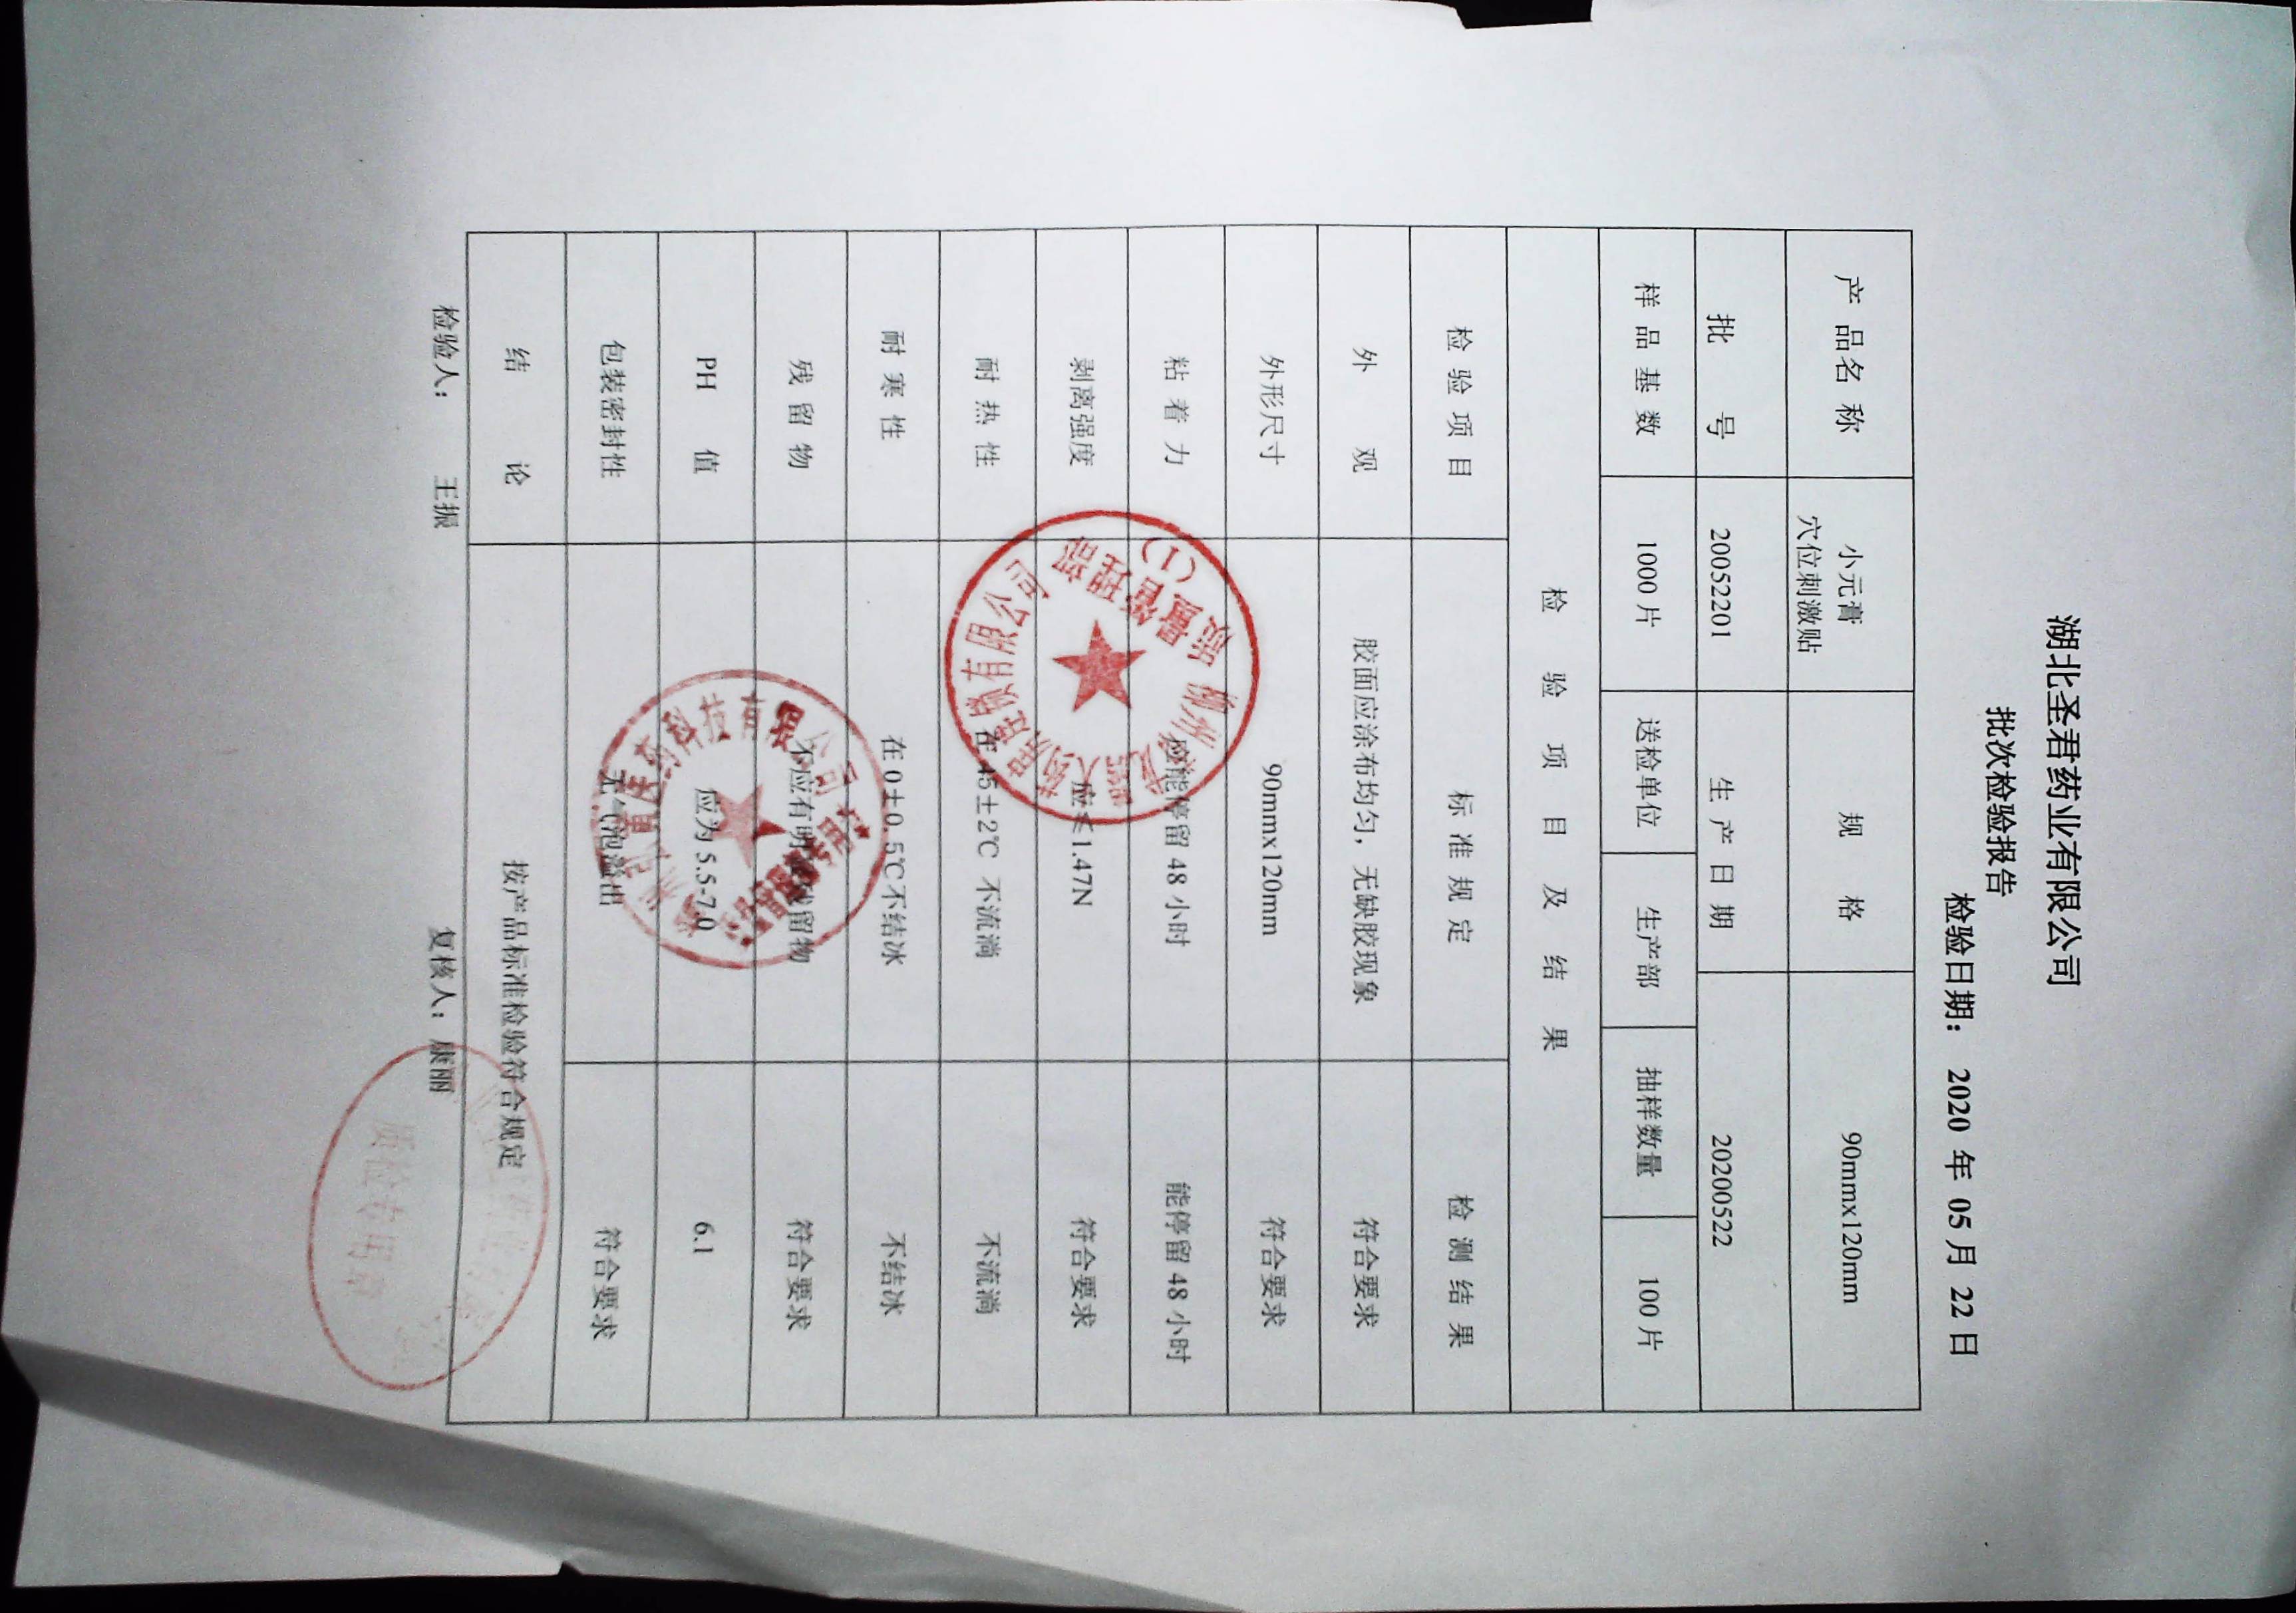 湖北圣君药业有限公司
批次检验报告
检验日期: 2020 年 05 月 22 日
产 品 名 称 小元膏 穴位刺激贴 规 格 90mmx120mm
批 号 20052201 生 产 日 期 20200522
样 品 基 数 1000 片 送检单位 生产部 抽样数量 100 片
检 验 项 目 及 结 果
检 验 项 目 标 准 规 定 检 测 结 果
外 观 胶面应涂布均匀，无缺胶现象 符合要求
外形尺寸 90mmx120mm 符合要求
粘 着 力 应能停留 48 小时 能停留 48 小时
剥离强度 应≮1.47N 符合要求
耐 热 性 在 45±2℃ 不流淌 不流淌
耐 寒 性 在 0±0.5℃不结冰 不结冰
残 留 物 不应有明 残留物 符合要求
PH 值 应为 5.5-7.0 6.1
包装密封性 无气泡溢出 符合要求
结 论 按产品标准检验符合规定
检验人: 王振 复核人: 康丽
有限公司
质量管理部
(1)
药科技有限公司
质检专用章